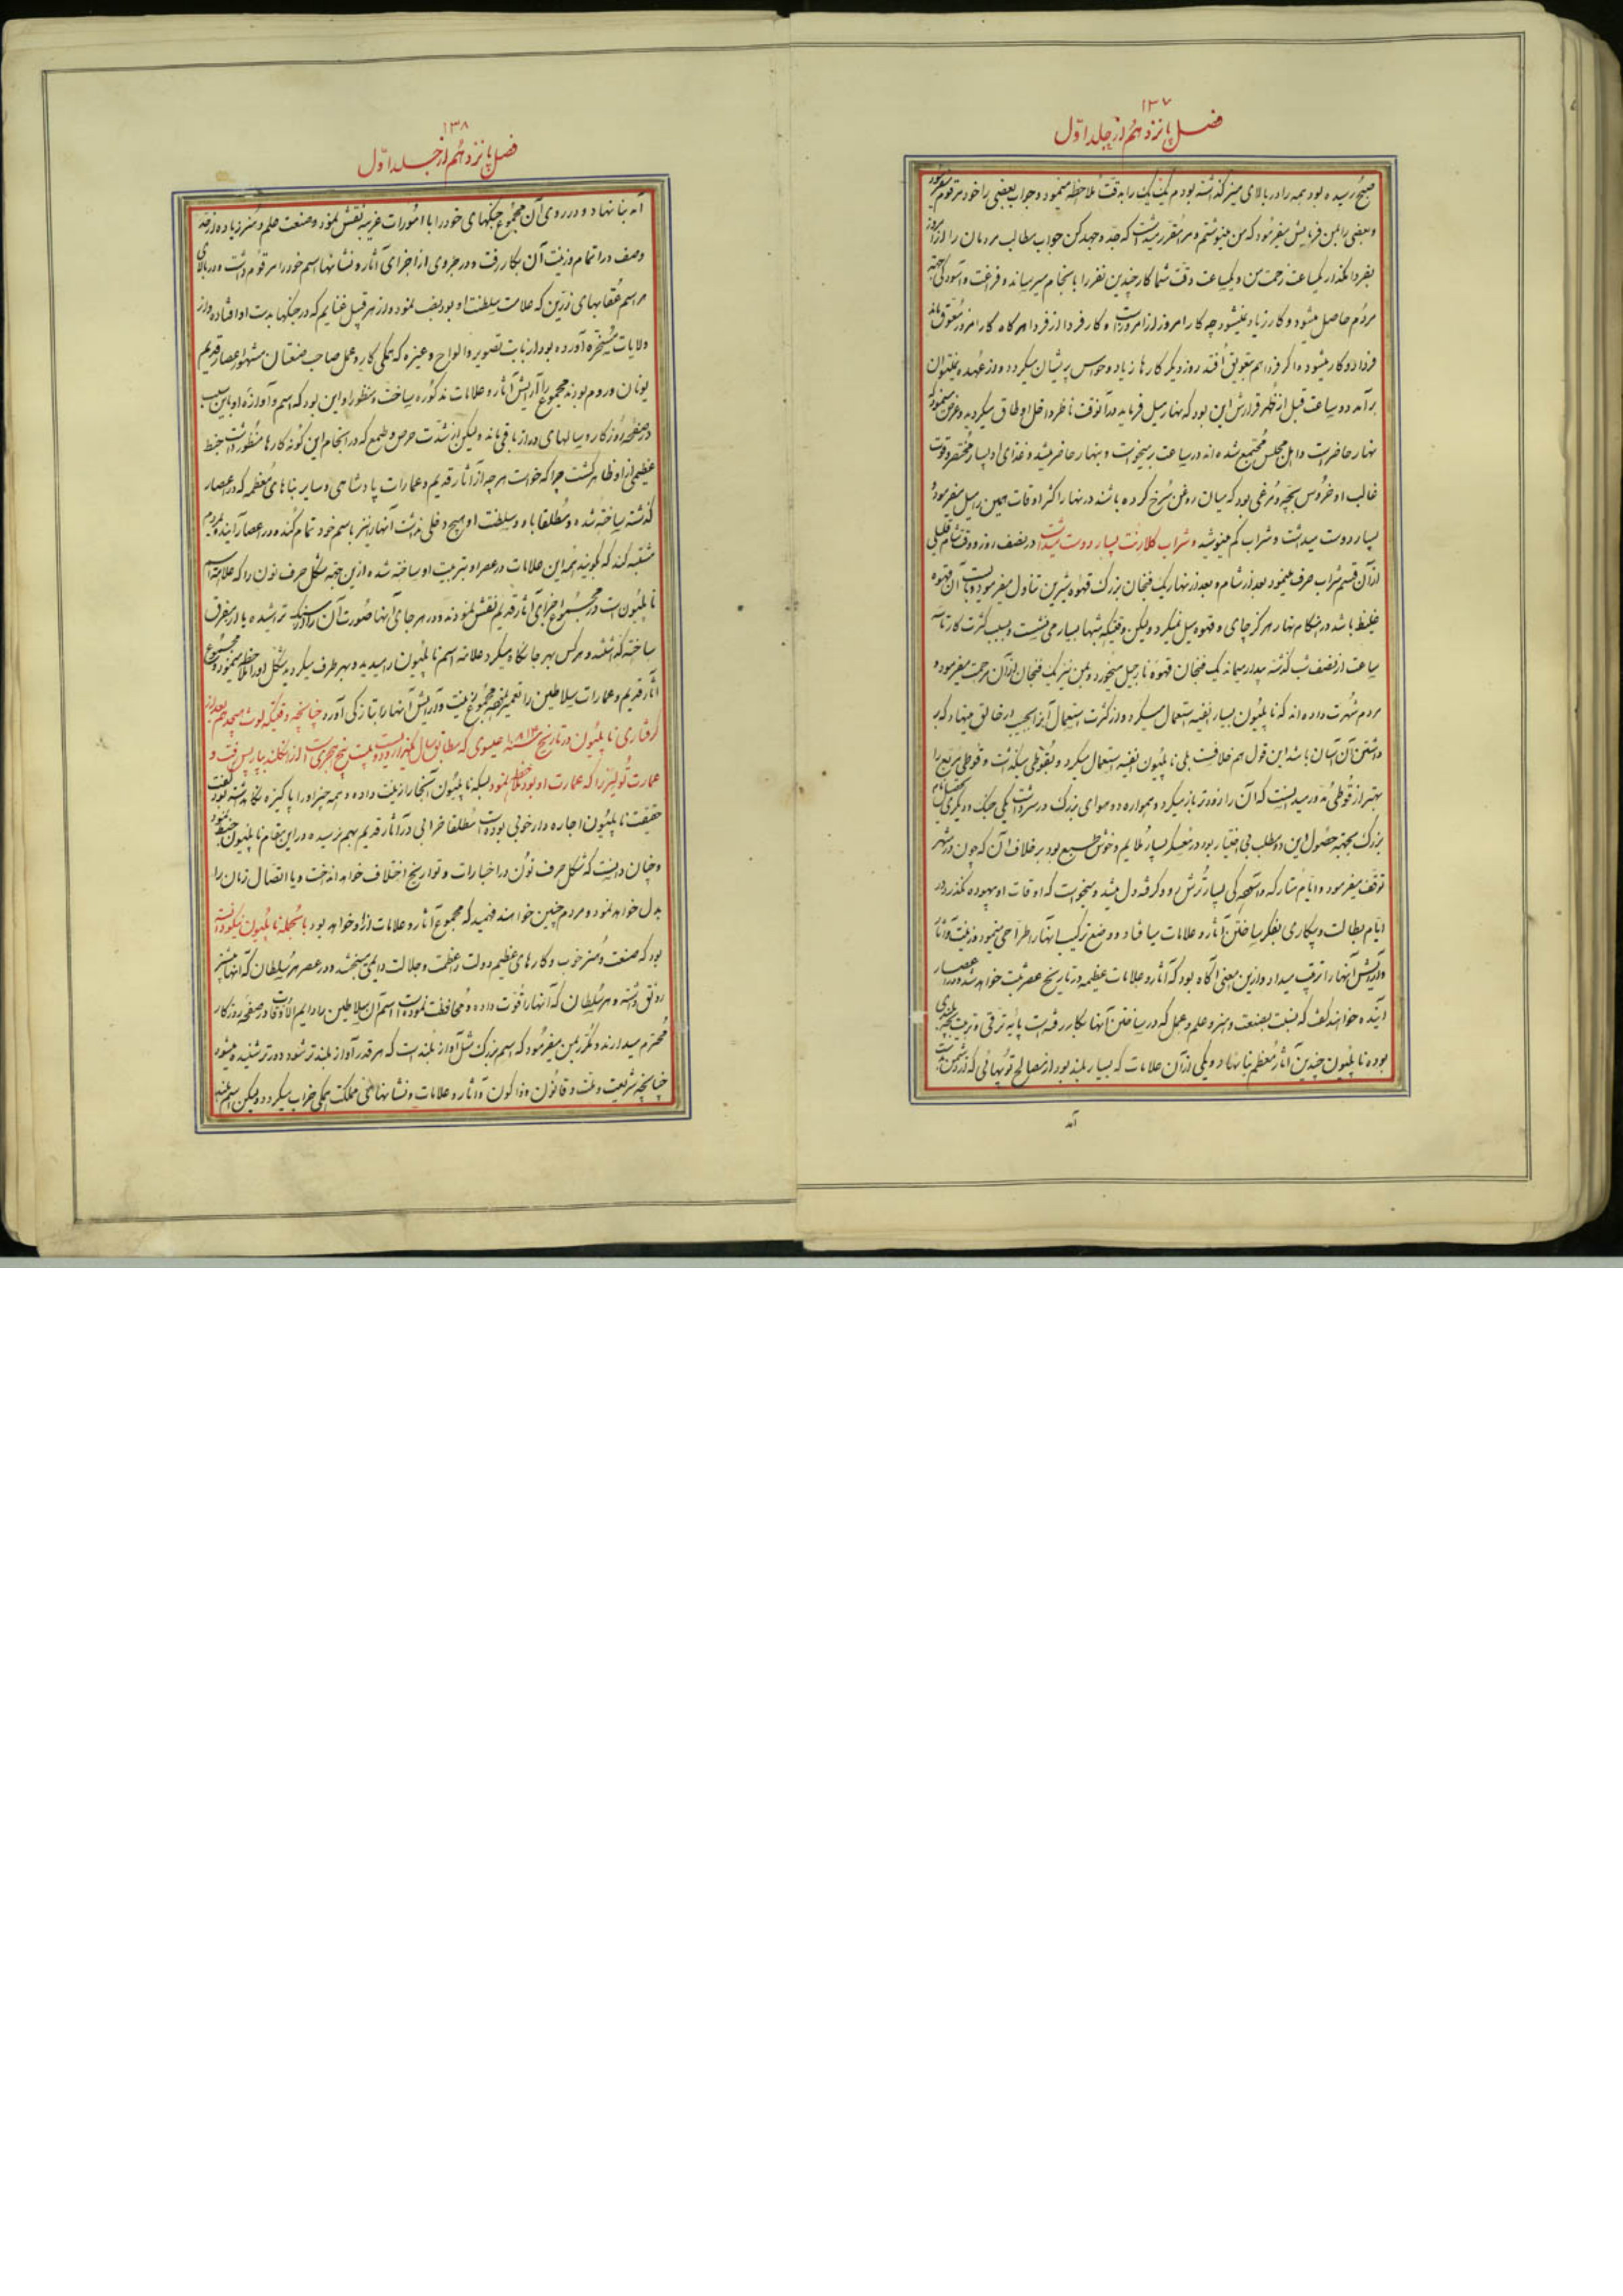 ۱۳۷
فصل پانزدهم از جلد اول
صبح رسیده بود همه را در بالای میز گذاشته بودم یک یک را به دقت ملاحظه مینمود و جواب بعضی را خود مرقوم میفرمود
و بعضی را بمن فرمایش میفرمود که من مینوشتم و مرا مقرر میداشت که جد و جهد کن جواب مطالب مردمان را از امروز
بفردا مگذار یکساعت زحمت من و یکساعت دقت شما کار چندین نفر را بانجام میرساند و فراغت و آسودگی بجهة
مردم حاصل میشود و کار زیاد نمیشود چه کار امروز از امروز است و کار فردا از فردا هرگاه کار امروز معوق ماند
فردا دو کار میشود و اگر فردا هم بتعویق افتد روز دیگر کارها زیاد و حواس پریشان میگردد و از عهده نمیتوان
برآمد دو ساعت قبل از ظهر قرارش این بود که نهار میل فرماید در آنوقت ناظر داخل اوطاق میگردید و عرض مینمود که
نهار حاضر است و اهل مجلس مجتمع شده اند در ساعت برمیخواست و بنهار حاضر میشد و غذای او بسیار مختصر و قوت
غالب او خروس بچه و مرغی بود که میان روغن سرخ کرده باشند در نهار اکثر اوقات همین را میل میفرمود و
بسیار دوست میداشت و شراب کم مینوشید و شراب کلارنت بسیار دوست میداشت در نصف روز و وقت شام قلیلی
از آن قسم شراب صرف مینمود بعد از شام و بعد از نهار یک فنجان بزرگ قهوه شیرین تناول میفرمود و بایست آن قهوه
غلیظ باشد در هنگام نهار هرگز چای و قهوه میل نمیکرد ولیکن وقتیکه شبها بسیار می نشست و بسبب کثرت کار تا سه
ساعت از نصف شب گذشته بیدار میماند یک فنجان قهوه نارجیل میخورد و بمن نیز یک فنجان از آن مرحمت میفرمود و
مردم شهرت داده اند که ناپلئون بسیار انفیه استعمال میکرد و از کثرت استعمال آنرا بجیب ارخالق مینهاد که بر
داشتن آن آسان باشد این قول هم خلافست بلی ناپلئون انفیه استعمال میکرد و بقوطی میگذاشت و قوطی مربع را
بهتر از قوطی مدور میدانست که آن را زودتر باز میکرد و همواره دو هوای بزرگ در سر داشت یکی جنگ و دیگری
بزرگ بجهته حصول این دو مطلب بی اختیار بود در معسکر بسیار ملایم و خوش طبع بود بر خلاف آن که چون در شهر
توقف میفرمود و ایام متارکه و آسودگی بسیار ترش رو و گرفته دل میشد و نمیخواست که اوقات او بیهوده بگذرد در
ایام بطالت و بیکاری بفکر ساختن آثار و علامات میافتاد و وضع ترکیب آنها را طراحی مینمود و زینت و آثار
و آرایش آنها را ترتیب میداد و از این معنی آگاه بود که آثار و علامات عظیمه در تاریخ عصر ثبت خواهد شد و در اعصار
آینده خواهند گفت که نسبت بصنعت و هنر و علم و عمل که در ساختن آنها بکار رفته است پایه ترقی و تربیت بچه
بوده ناپلئون چندین آثار معظم بنا نهاد و یکی از آن علامات که بسیار بلند بود از مصالح توپهائی که از دشمن بدست
آمد
۱۳۸
فصل پانزدهم از جلد اول
آمد بنا نهاد و در روی آن مجموع جنگهای خود را با امورات غریبه نقش نمود و صنعت علم و هنر زیاده از حد
وصف در اتمام و زینت آن بکار رفت و در هر جزوی از اجزای آثار و نشانها اسم خود را مرقوم داشت و در بالای
هر اسم عقابهای زرین که علامت سلطنت او بود نصب نمود و از هر قبیل غنایم که در جنگها بدست او افتاده و از
ولایات مسخره آورده بود از بابت تصویر و الواح و غیره که همگی کار و عمل صاحب صنعتان مشهور اعصار قدیم
یونان و روم بودند مجموع را آرایش آثار و علامات مذکوره ساخت و منظور او این بود که اسم و آوازه او باین سبب
در صفحه روزگار و سالهای دراز باقی ماند ولیکن از شدت حرص و طمع که در انجام این گونه کارها منظور داشت خبط
عظیمی از او ظاهر گشت چرا که خواست هر چه از آثار قدیم و عمارات پادشاهی و سایر بناهای معظمه که در اعصار
گذشته ساخته شده و مطلقا باو و سلطنت او هیچ دخلی نداشت آنها را نیز باسم خود تمام کند و در اعصار آینده بر مردم
مشتبه کند که گویند همه این علامات در عصر او و بتربیت او ساخته شده ازین جهته شکل حرف نون را که علامت اسم
ناپلئون است در مجموع اجزای آثار قدیم نقش نمودند و در هر جای آنها صورت آن را در سنگ تراشیده یا از مفرق
ساخته گذاشتند و هر کس بهر جا نگاه میکرد علامت اسم ناپلئون را میدید و بهر طرف میگردید شکل او را ملاحظه مینمود و مجموع
آثار قدیم و عمارات سلاطین را تعمیر نموده مجموع زینت و آرایش آنها را بتازگی آورده چنانچه وقتیکه لوئی هیجدهم بعد از
گرفتاری ناپلئون در تاریخ سنه ۱۸۱۴ عیسوی که مطابق سال یکهزار و دویست و بیست و پنج هجری است از انگلند بپاریس رفت و
عمارت تولیرز را که عمارت او بود ملاحظه نمود بسکه ناپلئون آنجا را زینت داده و همه چیز او را پاکیزه نگاهداشته بود گفت
حقیقت ناپلئون اجاره دار خوبی بوده است مطلقا خرابی در آثار قدیم بهم نرسیده در این مقام ناپلئون خبط نمود
و چنان دانست که شکل حرف نون در اخبارات و تواریخ اختلاف خواهد انداخت و یا اتصال زمان را
بدل خواهد نمود و مردم چنین خواهند فهمید که مجموع آثار و علامات از او خواهد بود بالجمله ناپلئون نیکو دانسته
بود که صنعت و هنر خوب و کارهای عظیم دولت را عظمت و جلالت دایمی میبخشد و در عصر هر سلطان که آنها بیشتر
رونق داشته و هر سلطان که آنها را قوت داده و محافظت نموده است اسم آن سلاطین مادام الاوقات در صفحه روزگار
محترم میدارند و مکرر بمن میفرمود که اسم بزرگ مثل آواز بلند است که هر قدر آواز بلندتر شود دورتر شنیده میشود
چنانچه شریعت و ملت و قانون و ارکون و آثار و علامات و نشانهای مملکت همگی خراب میگردد ولیکن اسم بلند